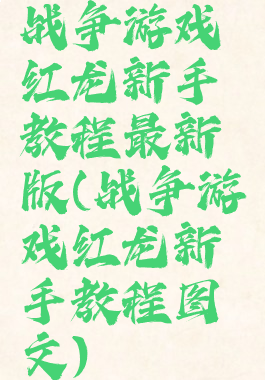 战争游戏
红龙新手
教程最新
版(战争游
戏红龙新
手教程图
文)